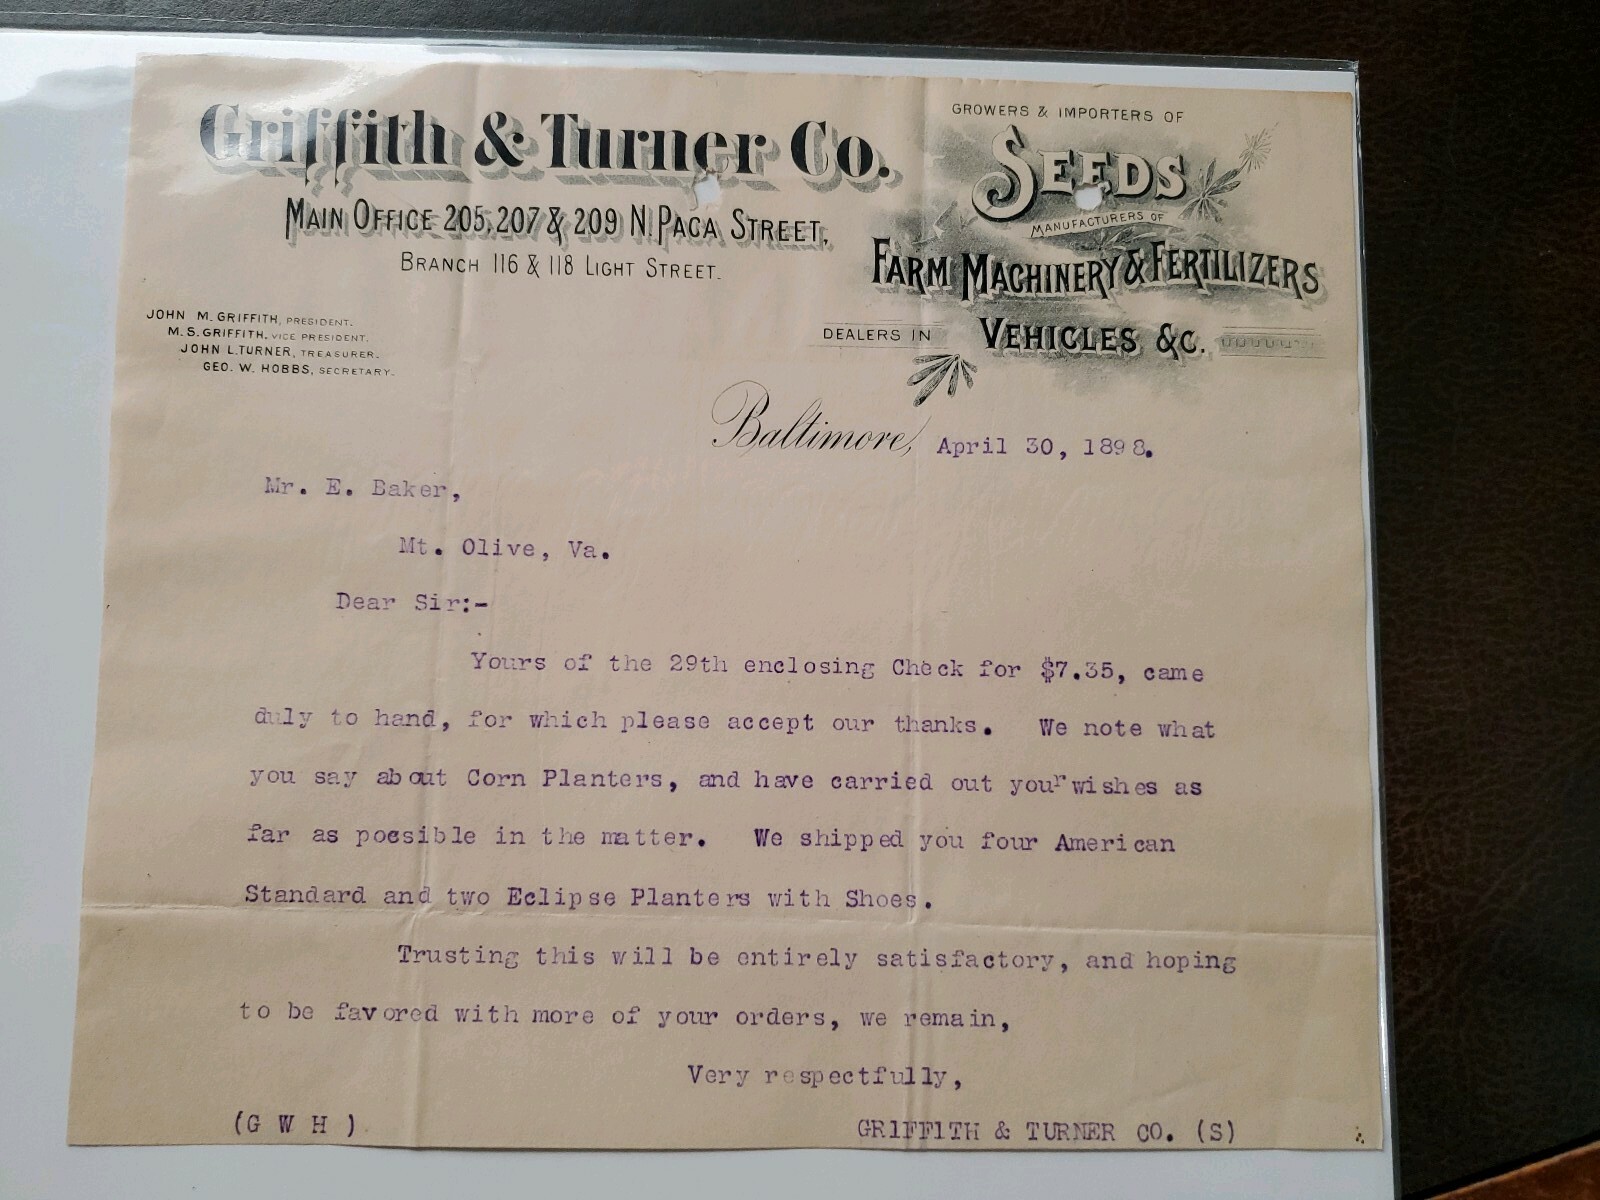 Griffith & Turner Co.
MAIN OFFICE 205, 207 & 209 N. PACA STREET,
BRANCH 116 & 118 LIGHT STREET.
GROWERS & IMPORTERS OF
SEEDS
MANUFACTURERS OF
FARM MACHINERY & FERTILIZERS
DEALERS IN VEHICLES &C.
JOHN M. GRIFFITH, PRESIDENT.
M. S. GRIFFITH, VICE PRESIDENT.
JOHN L. TURNER, TREASURER.
GEO. W. HOBBS, SECRETARY.
Baltimore, April 30, 1898.
Mr. E. Baker,
Mt. Olive, Va.
Dear Sir:-
Yours of the 29th enclosing Check for $7.35, came
duly to hand, for which please accept our thanks. We note what
you say about Corn Planters, and have carried out your wishes as
far as possible in the matter. We shipped you four American
Standard and two Eclipse Planters with Shoes.
Trusting this will be entirely satisfactory, and hoping
to be favored with more of your orders, we remain,
Very respectfully,
(G W H ) GRIFFITH & TURNER CO. (S)